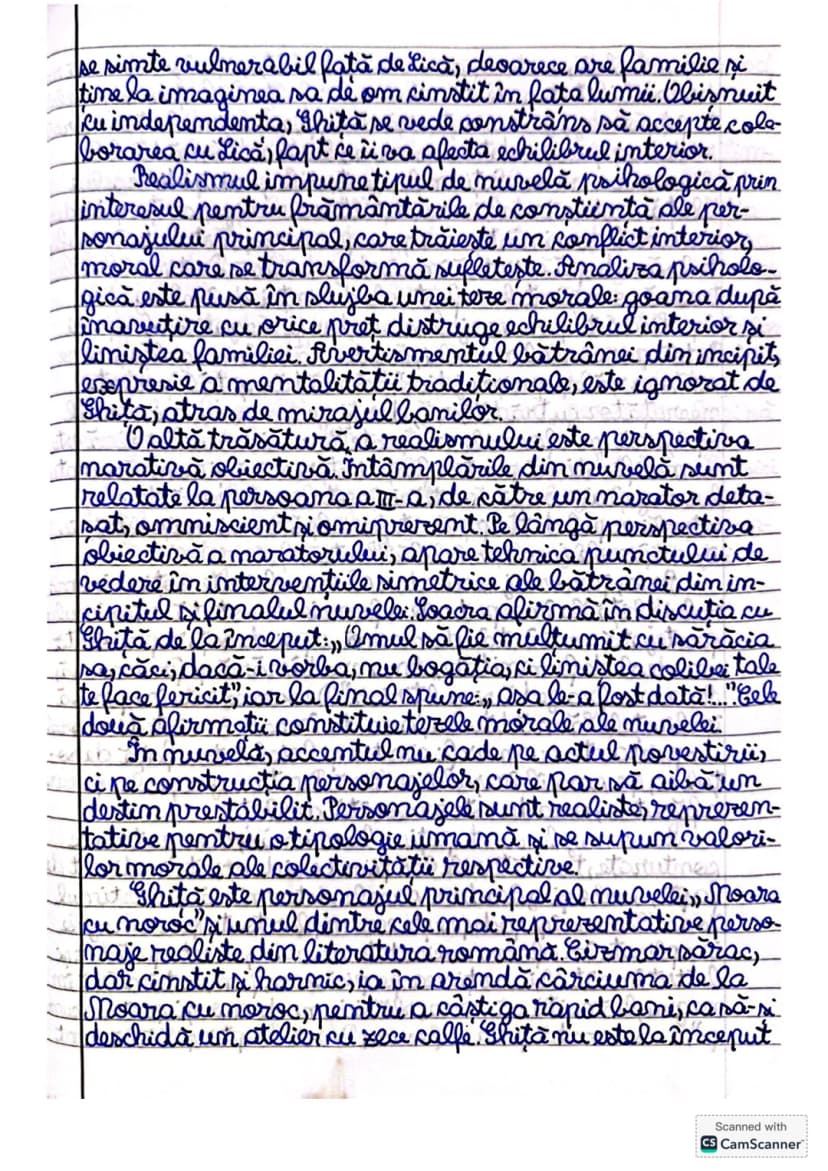 se simte vulnerabil față de Lică, deoarece are familie și
ține la imaginea sa de om cinstit în fața lumii. Obișnuit
cu independența, Ghiță se vede constrâns să accepte cola-
borarea cu Lică, fapt ce îi va afecta echilibrul interior.
Realismul impune tipul de nuvelă psihologică prin
interesul pentru frământările de conștiință ale per-
sonajului principal, care trăiește un conflict interior,
moral care se transformă sufletește. Analiza psiholo-
gică este pusă în slujba unei teze morale: goana după
înavuțire cu orice preț distruge echilibrul interior și
liniștea familiei. Avertismentul bătrânei din incipit,
expresie a mentalității tradiționale, este ignorat de
Ghiță, atras de mirajul banilor.
O altă trăsătură a realismului este perspectiva
narativă obiectivă. Întâmplările din nuvelă sunt
relatate la persoana a III-a, de către un narator deta-
șat, omniscient și omiprezent. Pe lângă perspectiva
obiectivă a naratorului, apare tehnica punctului de
vedere în intervențiile simetrice ale bătrânei din in-
cipitul și finalul nuvelei. Soacra afirmă în discuția cu
Ghiță de la început: „Omul să fie mulțumit cu sărăcia
sa, căci, dacă-i vorba, nu bogăția, ci liniștea colibei tale
te face fericit", iar la final spune: „așa le-a fost dată!..." Cele
două afirmații constituie tezele morale ale nuvelei.
În nuvelă, accentul nu cade pe actul povestirii,
ci pe construcția personajelor, care par să aibă un
destin prestabilit. Personajele sunt realiste, reprezen-
tative pentru o tipologie umană și se supun valori-
lor morale ale colectivității respective.
Ghiță este personajul principal al nuvelei „Moara
cu noroc" și unul dintre cele mai reprezentative perso-
naje realiste din literatura română. Cizmar sărac,
dar cinstit și harnic, ia în arendă cârciuma de la
Moara cu noroc, pentru a câștiga rapid bani, ca să-și
deschidă un atelier cu zece calfe. Ghiță nu este la început
Scanned with
CS CamScanner